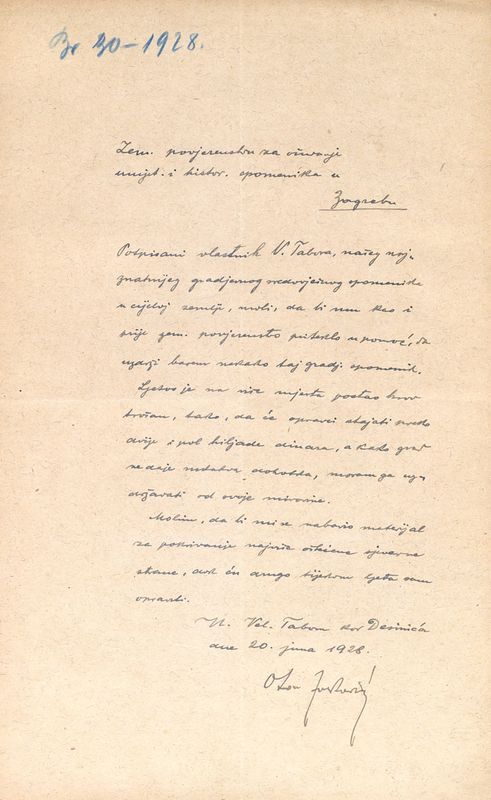 Br 30-1928.
Zem. povjerenstvu za čuvanje
umjet. i histor. spomenika u
Zagrebu
Potpisani vlastnik V. Tabora, našeg naj-
znatnijeg gradjevnog sredovječnog spomenika
u cijeloj zemlji, moli, da bi mu kao i
prije zem. povjerenstvo priteklo u pomoć, da
uzdrži barem nekako taj gradj. spomenik.
Ljetos je na više mjesta postao krov
trošan, tako, da će opravci stajati preko
dvije i pol hiljade dinara, a kako grad
ne daje nikakva dohotka, moram ga uz-
državati od svoje mirovine.
Molim, da bi mi se nabavio materijal
za pokrivanje najviše oštećene sjeverne
strane, dok ću drugo tijekom ljeta sam
opraviti.
U Vel. Taboru kod Desinića
dne 20. juna 1928.
Oton